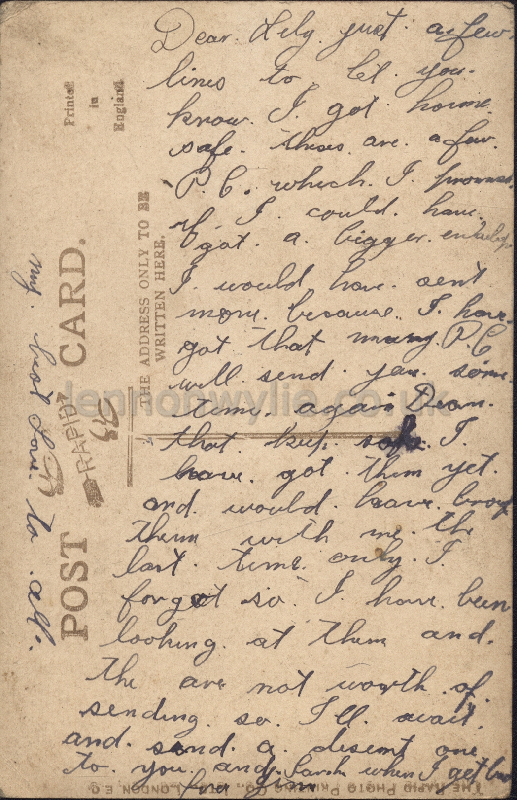 Dear Lily just a few
lines to let you
know I got home
safe. theis are a few
P.C. which I promised
If I could have
got a bigger envelope
I would have sent
more because I have
got that many P.C
will send you some
time again Dear.
that keep safe I
have got them yet.
and would have brought
them with me the
last time only I
forgot so I have been
looking at them and
the are not worth of
sending so I'll wait
and send a desent one
to you and Sarah when I get
for you
my best love to all.
POST CARD.
RAPID
THE ADDRESS ONLY TO BE
WRITTEN HERE.
Printed
in
England
THE RAPID PHOTO PRINTING CO., LTD., LONDON, E.C.
lennonwylie.co.uk